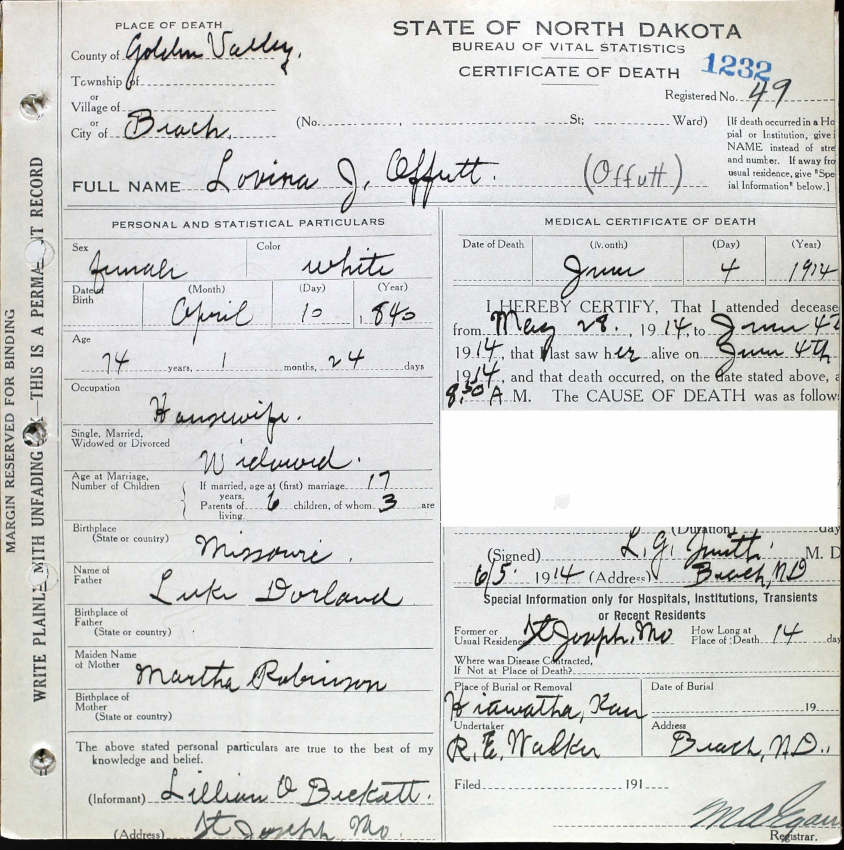 PLACE OF DEATH
County of Golden Valley.
Township of
or
Village of
or
City of Beach.
STATE OF NORTH DAKOTA
BUREAU OF VITAL STATISTICS
CERTIFICATE OF DEATH
1232
Registered No. 49
(No. , St; Ward)
[If death occurred in a Ho
pital or Institution, give i
NAME instead of stre
and number. If away fro
usual residence, give "Spe
ial Information" below.]
FULL NAME Lovina J. Offutt. (Offutt)
MARGIN RESERVED FOR BINDING
WRITE PLAINLY WITH UNFADING —THIS IS A PERMA T RECORD
PERSONAL AND STATISTICAL PARTICULARS
Sex female
Color white
Date of Birth
(Month) April
(Day) 10
(Year) 1840
Age
74 years, 1 months, 24 days
Occupation
Housewife.
Single, Married,
Widowed or Divorced
Widowed.
Age at Marriage,
Number of Children
If married, age at (first) marriage 17
years.
Parents of 6 children, of whom 3 are
living.
Birthplace
(State or country)
Missouri.
Name of
Father
Luke Dorland
Birthplace of
Father
(State or country)
Maiden Name
of Mother
Martha Robinson
Birthplace of
Mother
(State or country)
The above stated personal particulars are true to the best of my
knowledge and belief.
(Informant) Lillian O Beckett.
(Address) St Joseph, Mo.
MEDICAL CERTIFICATE OF DEATH
Date of Death
(Month) June
(Day) 4
(Year) 1914
I HEREBY CERTIFY, That I attended decease
from May 28. , 1914, to June 4th
1914, that I last saw her alive on June 4th
1914, and that death occurred, on the date stated above, a
8.30 A M. The CAUSE OF DEATH was as follow
(Duration) day
(Signed) L. G. Smith. M. D
6/5. 1914 (Address) Beach, ND
Special Information only for Hospitals, Institutions, Transients
or Recent Residents
Former or
Usual Residence St Joseph, Mo
How Long at
Place of Death 14 day
Where was Disease Contracted,
If Not at Place of Death?
Place of Burial or Removal
Hiawatha, Kan
Date of Burial
19
Undertaker
R. E. Walker
Address
Beach, N.D.
Filed 191
Registrar.